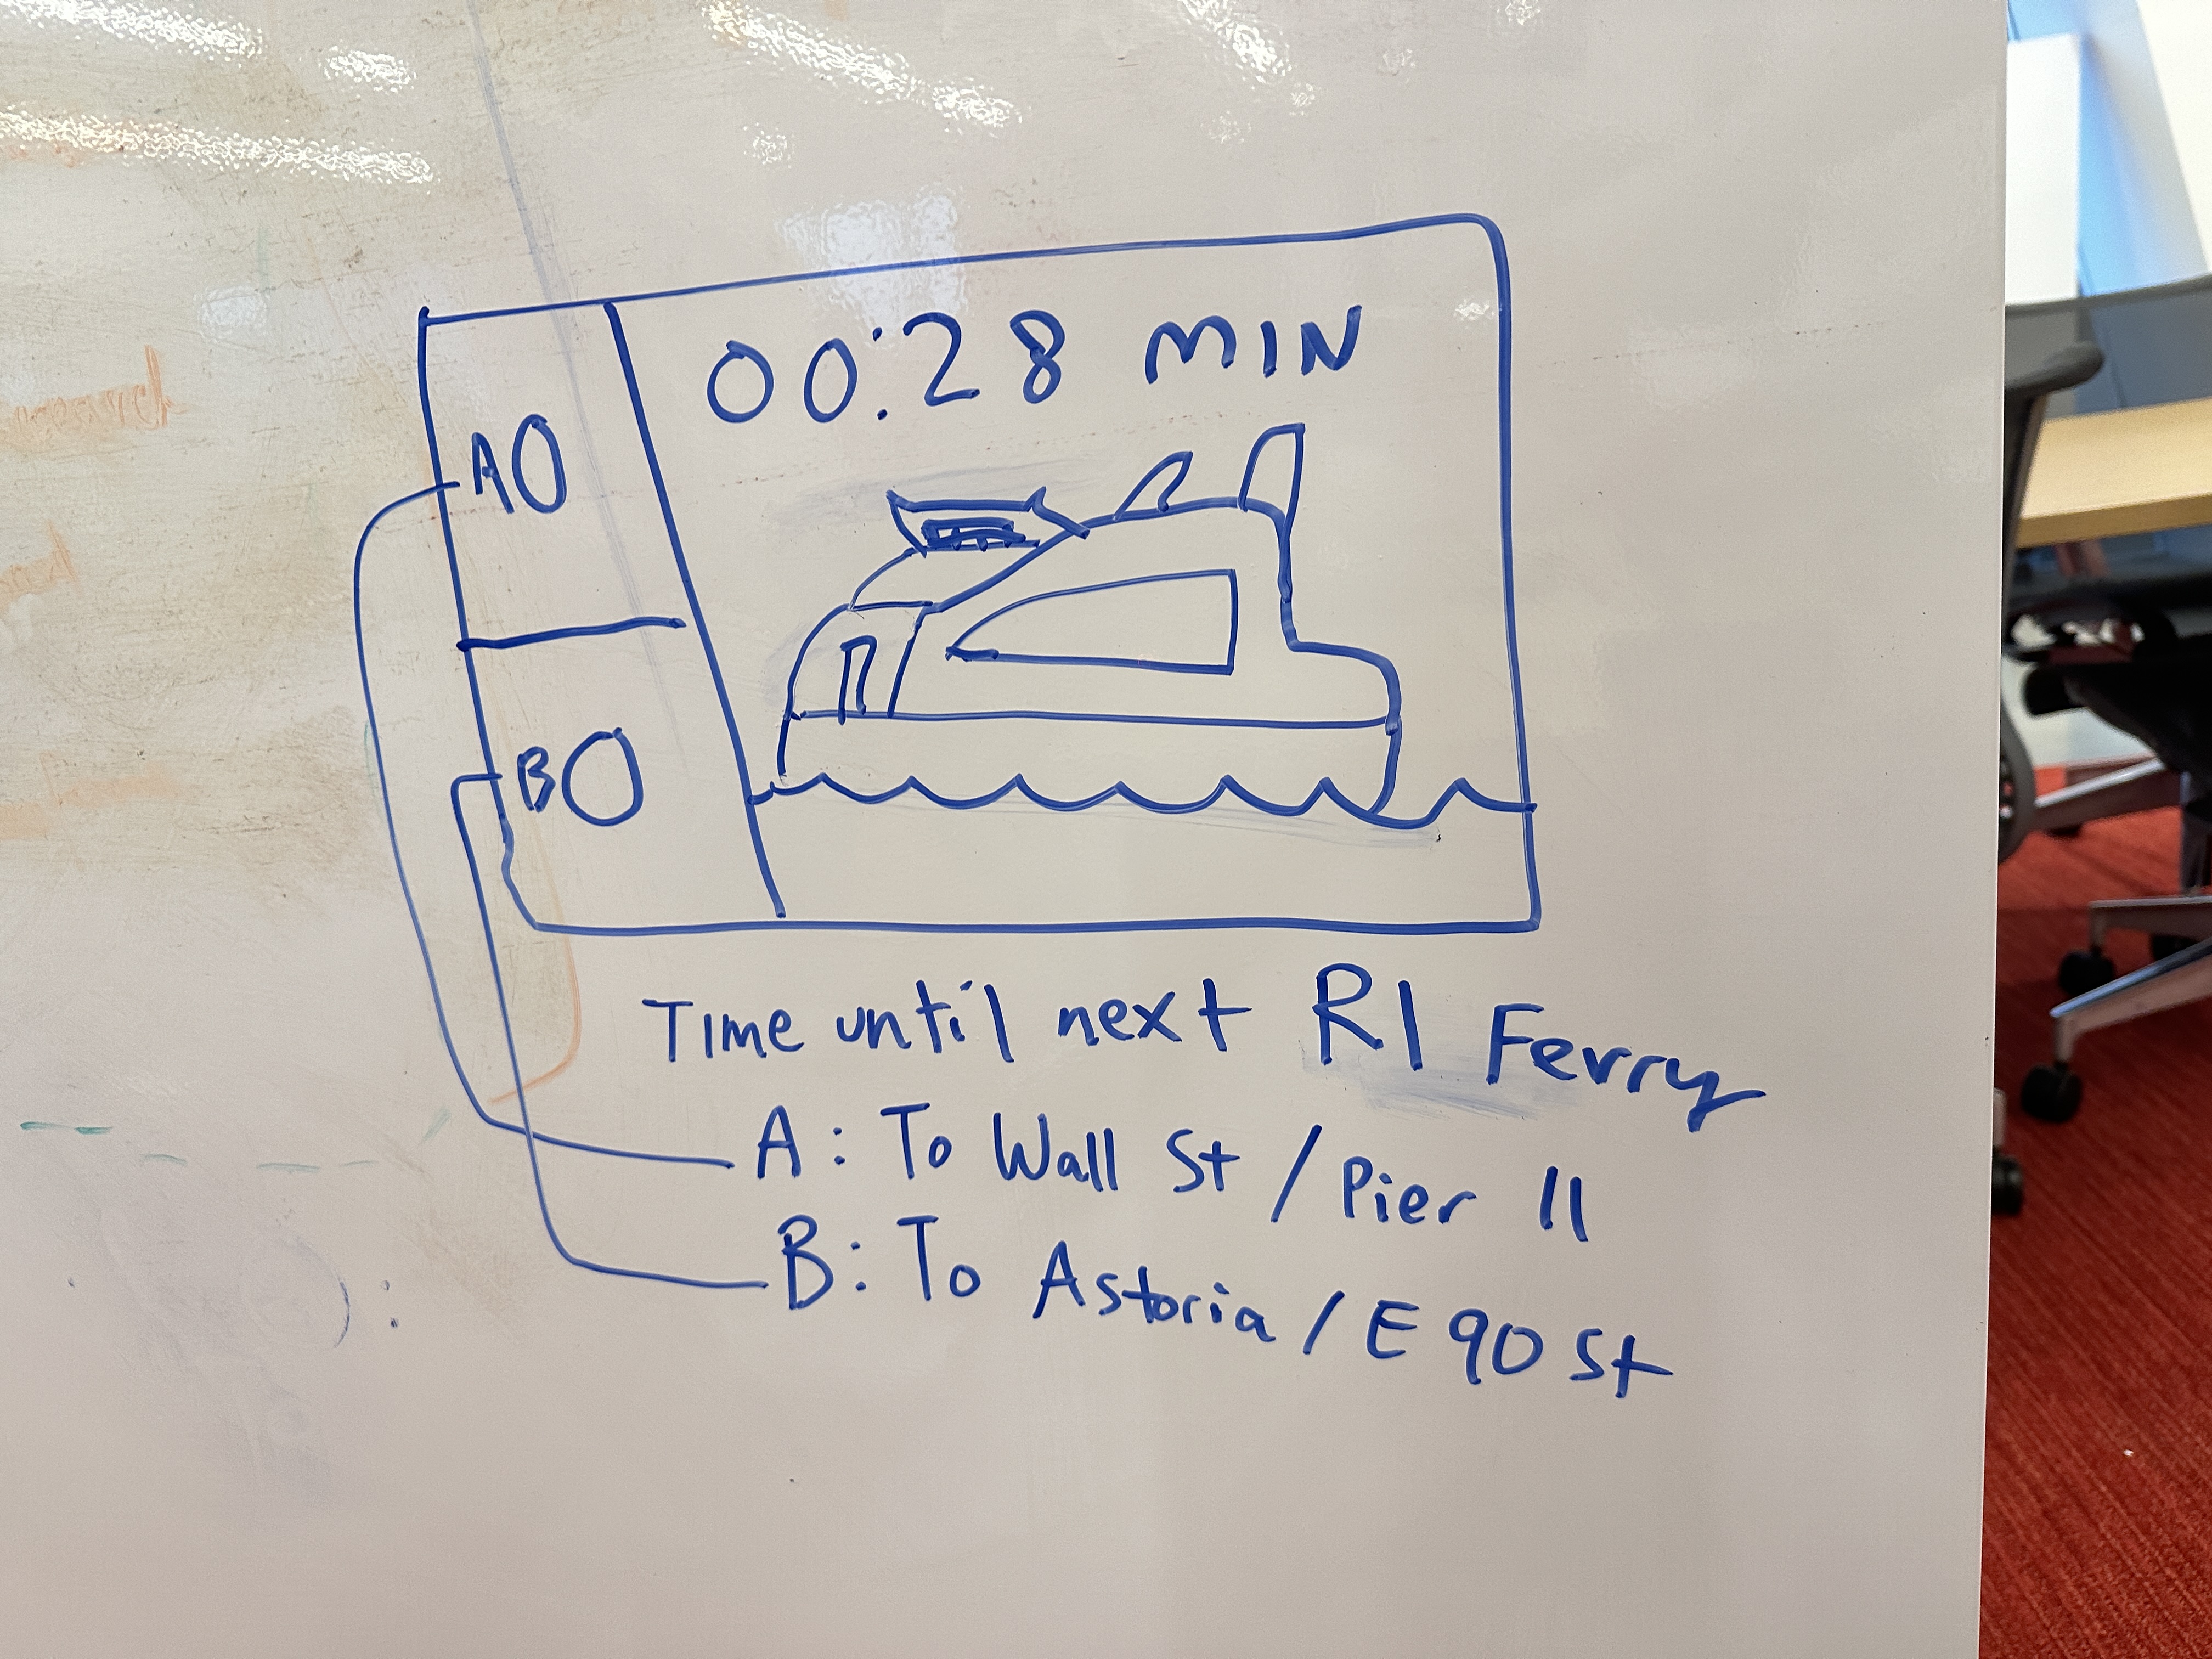 00:28 MIN
A
B
Time until next RI Ferry
A: To Wall St / Pier 11
B: To Astoria / E 90 St